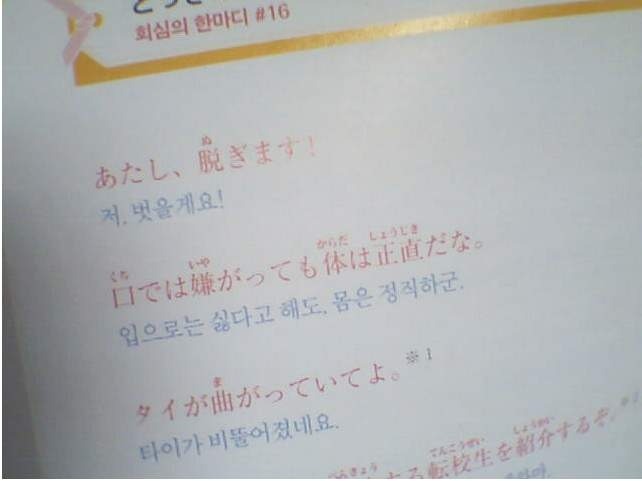 회심의 한마디 #16
あたし、脱ぎます！
저, 벗을게요!
口では嫌がっても体は正直だな。
입으로는 싫다고 해도, 몸은 정직하군.
タイが曲がっていてよ。※1
타이가 비뚤어졌네요.
する転校生を紹介するぞ。